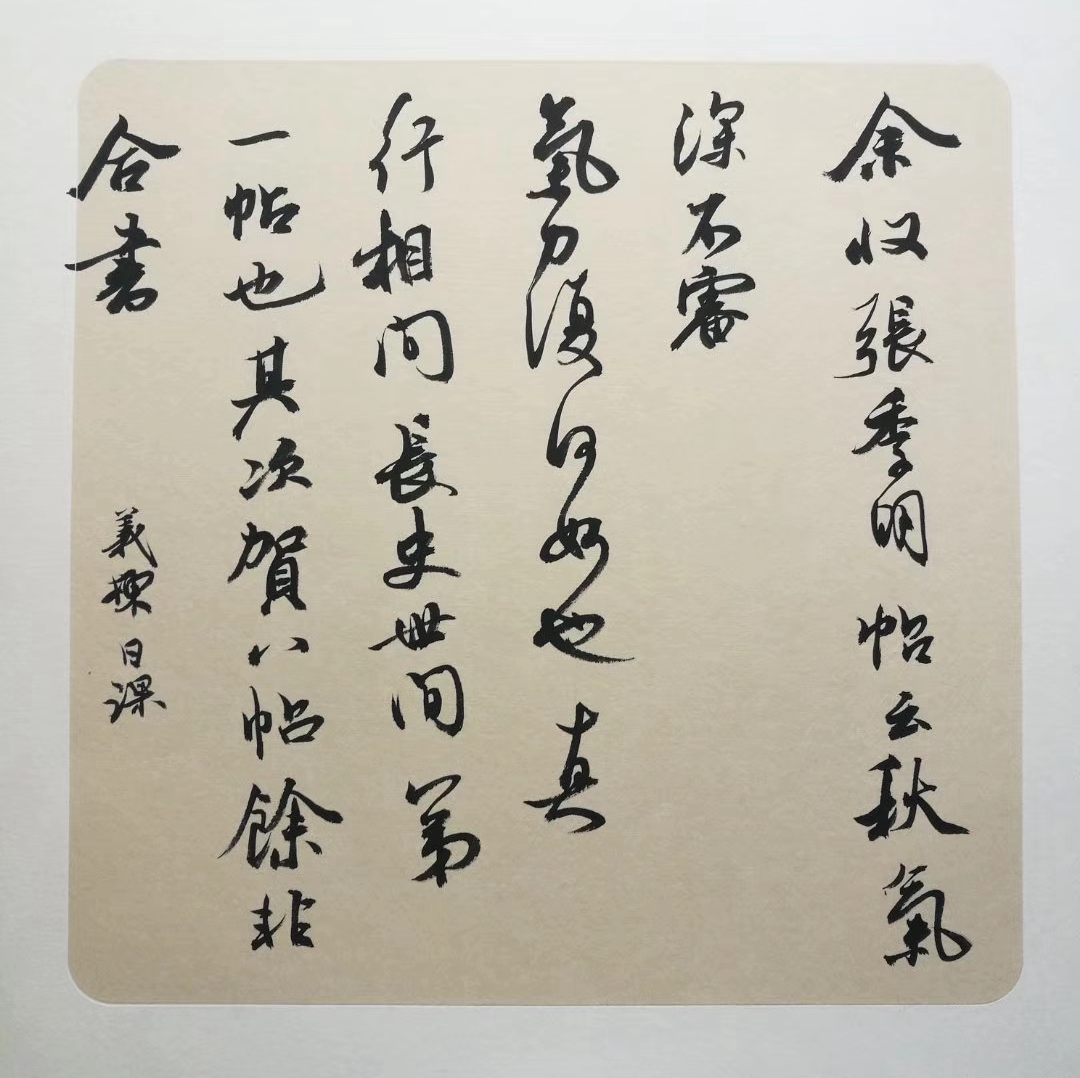 余收張季明帖云秋氣
深不審
氣力復何如也真
行相間長史世間第
一帖也其次賀八帖餘非
合書
義日課